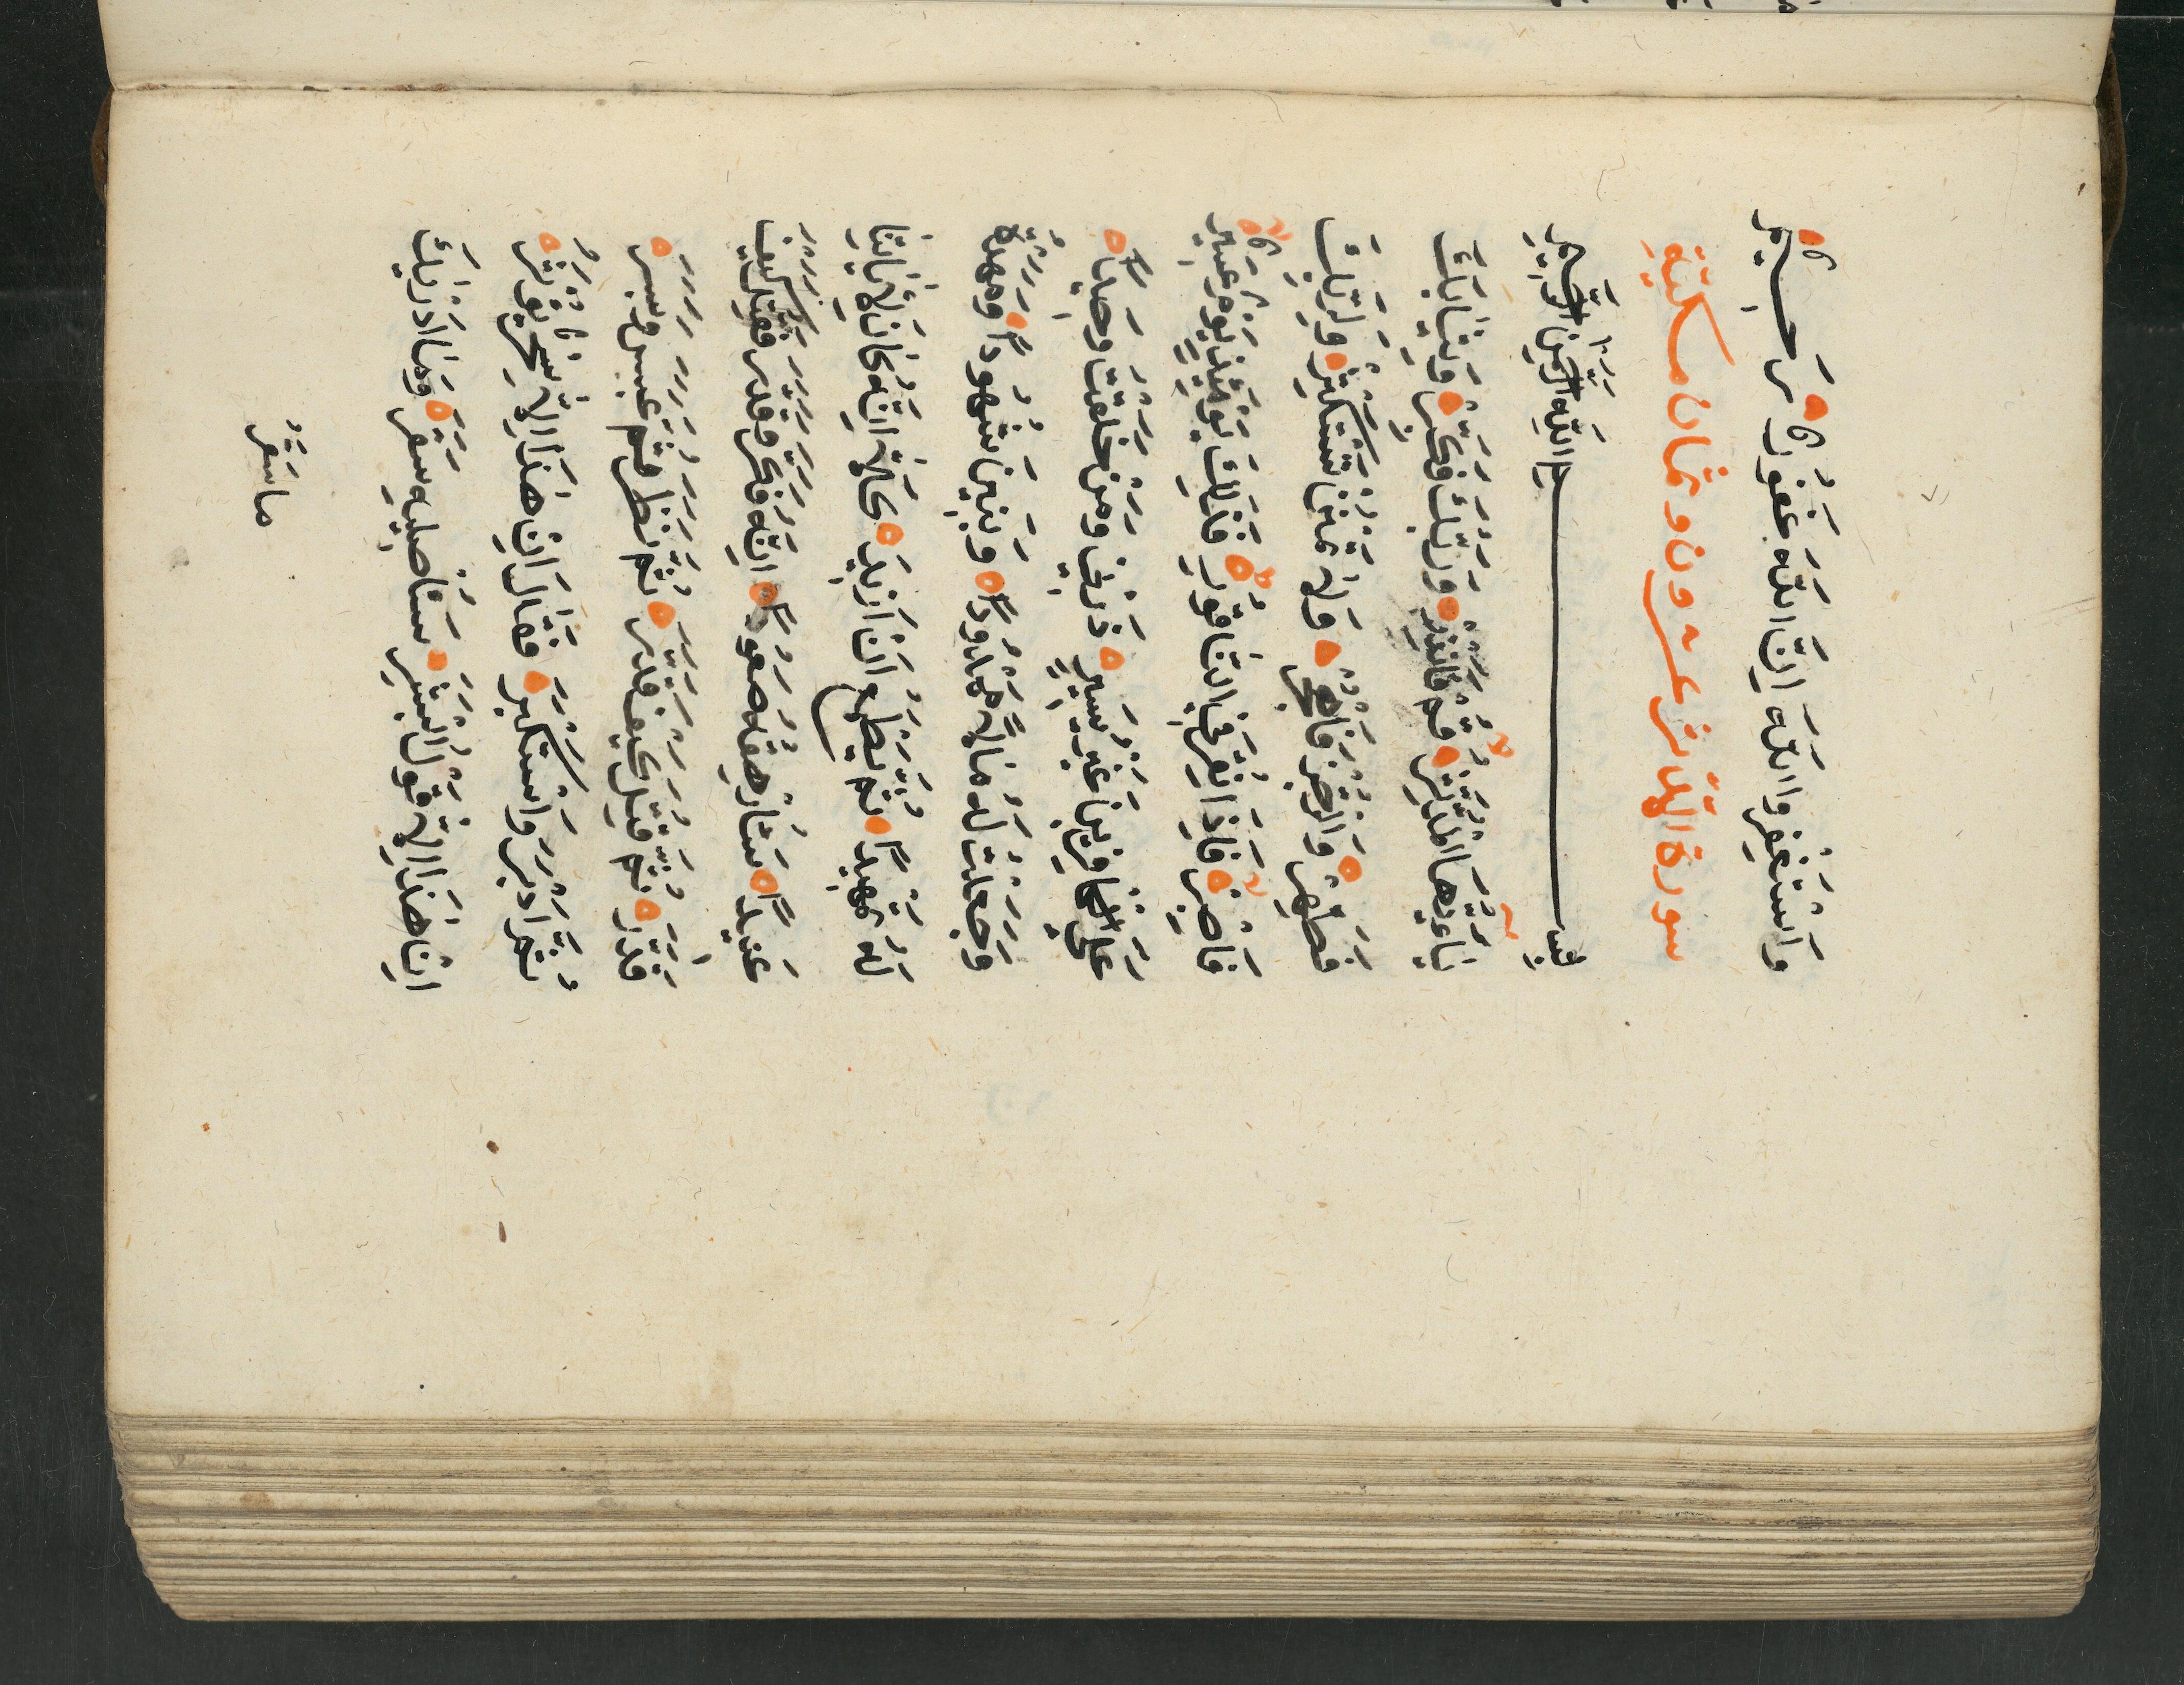 وَاسْتَغْفِرُوا اللَّهَ اِنَّ اللَّهَ غَفُورٌ رَحِيمٌ
سورة المدّثر عشرون وثمان مكيّة
بسم اللَّهِ الرَّحْمٰنِ الرَّحِيمِ
يَاءَيُّهَا الْمُدَّثِّرُ قُمْ فَاَنْذِرْ وَرَبَّكَ فَكَبِّرْ وَثِيَابَكَ
فَطَهِّرْ وَالرُّجْزَ فَاهْجُرْ وَلَا تَمْنُنْ تَسْتَكْثِرُ وَلِرَبِّكَ
فَاصْبِرْ فَاِذَا نُقِرَ فِي النَّاقُورِ فَذٰلِكَ يَوْمَئِذٍ يَوْمٌ عَسِيرٌ
عَلَى الْكَافِرِينَ غَيْرُ يَسِيرٍ ذَرْنِي وَمَنْ خَلَقْتُ وَحِيدًا
وَجَعَلْتُ لَهُ مَالًا مَمْدُودًا وَبَنِينَ شُهُودًا وَمَهَّدْتُ
لَهُ تَمْهِيدًا ثُمَّ يَطْمَعُ اَنْ اَزِيدَ كَلَّا اِنَّهُ كَانَ لِاٰيَاتِنَا
عَنِيدًا سَاُرْهِقُهُ صَعُودًا اِنَّهُ فَكَّرَ وَقَدَّرَ فَقُتِلَ كَيْفَ
قَدَّرَ ثُمَّ قُتِلَ كَيْفَ قَدَّرَ ثُمَّ نَظَرَ ثُمَّ عَبَسَ وَبَسَرَ
ثُمَّ اَدْبَرَ وَاسْتَكْبَرَ فَقَالَ اِنْ هٰذَا اِلَّا سِحْرٌ يُؤْثَرُ
اِنْ هٰذَا اِلَّا قَوْلُ الْبَشَرِ سَاُصْلِيهِ سَقَرَ وَمَا اَدْرٰيكَ
ما سَقَرُ